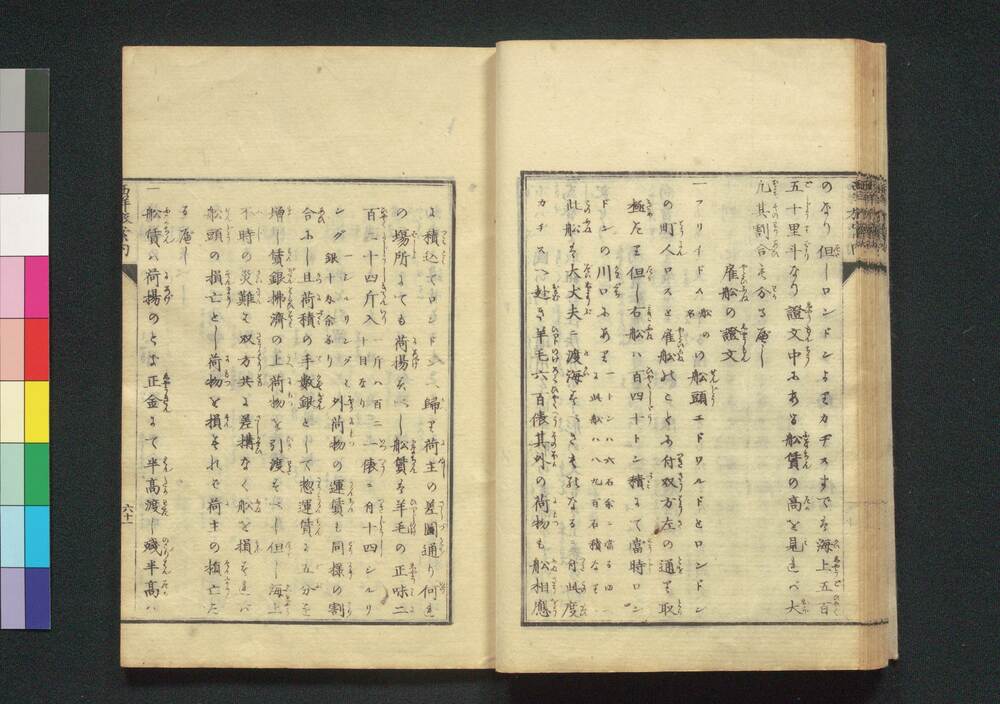 のなり但しロンドンよりカヂスまでは海上五百
五十里斗なり證文中にある船賃の高を見れバ大
凡其割合を分る㞍し
雇船の證文
一フリイドム船の名の船頭エドワルドとロンドン
の町人ロスと雇船のことに付双方左の通り取
極たり但し右船ハ百四十トン積にて當時ロン
ドンの川口にあり一トンハ六石余ニ當る四百
此船を大丈夫に渡海
カヂスへ赴き羊毛六百俵其外の荷物も船相應
に積込てロンドンへ歸り荷主の差圖通り何れ
の場所にても荷揚をべし船賃は羊毛の正味二
百二十四斤入一斤ハ百二十目なり一俵ニ付十四シルリ
ング一シルリング銀十匁余なり外荷物の運賃も同樣の割
合にし且荷積の手數銀として惣運賃に五分を
増し賃銀拂濟の上荷物を引渡すべし但し海上
不時の災難は双方共に差搆なく船を損ずれバ
船頭の損亡とし荷物を損ずれバ荷主の損亡た
る㞍し
一船賃は荷揚のとき正金にて半高渡し殘半高ハ
六十一